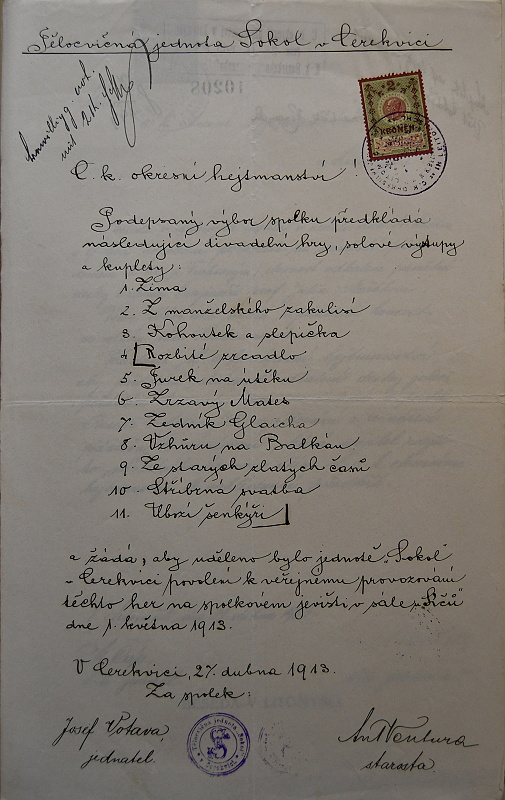 Tělocvičná jednota Sokol v Cerekvici
2
KRONEN
C. k. okresní hejtmanství!
Podepsaný výbor spolku předkládá
následující divadelní hry, solové výstupy
a kuplety:
1. Zima
2. Z manželského zakulisí
3. Kohoutek a slepička
4. Rozbité zrcadlo
5. Jurek na útěku
6. Zrzavý Mates
7. Zedník Glaicha
8. Vzhůru na Balkán
9. Ze starých zlatých časů
10. Stříbrná svatba
11. Ubozí šenkýři
a žádá, aby uděleno bylo jednotě „Sokol"
Cerekvici povolení k veřejnému provozování
těchto her na spolkovém jevišti v sále
dne 1. května 1913.
V Cerekvici, 27. dubna 1913.
Za spolek:
Josef Votava,
jednatel.
Ant Ventura
starosta.